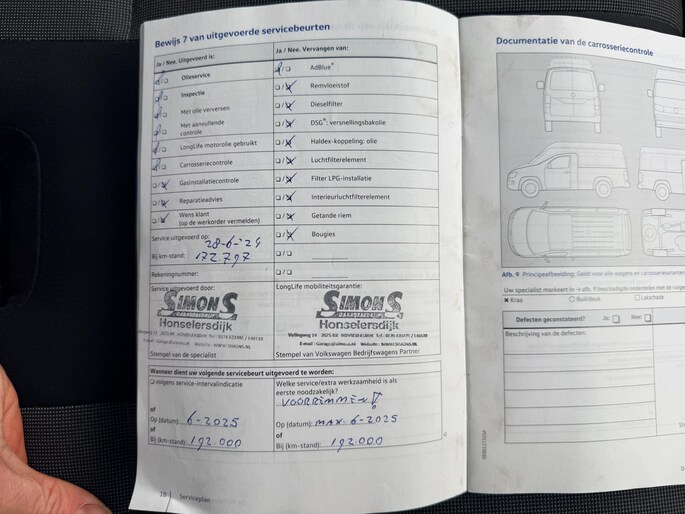 Bewijs 7 van uitgevoerde servicebeurten
Ja / Nee. Uitgevoerd is:
Olieservice
Inspectie
Met olie verversen
Met aanvullende
controle
LongLife motorolie gebruikt
Carrosseriecontrole
Gasinstallatiecontrole
Reparatieadvies
Wens klant
(op de werkorder vermelden)
Service uitgevoerd op: 28-6-'24
Bij km-stand: 172.797
Rekeningnummer:
Ja / Nee. Vervangen van:
AdBlue®
Remvloeistof
Dieselfilter
DSG®: versnellingsbakolie
Haldex-koppeling: olie
Luchtfilterelement
Filter LPG-installatie
Interieurluchtfilterelement
Getande riem
Bougies
Service uitgevoerd door:
SIMONS
GARAGEBEDRIJF
Honselersdijk
Stempel van de specialist
LongLife mobiliteitsgarantie:
SIMONS
GARAGEBEDRIJF
Honselersdijk
Stempel van Volkswagen Bedrijfswagens Partner
Wanneer dient uw volgende servicebeurt uitgevoerd te worden:
volgens service-intervalindicatie
of
Op (datum): 6-2025
of
Bij (km-stand): 192.000
Welke service/extra werkzaamheid is als
eerste noodzakelijk?
VOORREMMEN!
Op (datum): MAX. 6-2025
of
Bij (km-stand): 192.000
18
Serviceplan
Documentatie van de carrosseriecontrole
Afb. 9 Principeafbeelding: Geldt voor alle wagens en carrosserievarianten
Uw specialist markeert in
Kras
Buil/deuk
Lakschade
Defecten geconstateerd?
Ja:
Nee:
Beschrijving van de defecten: